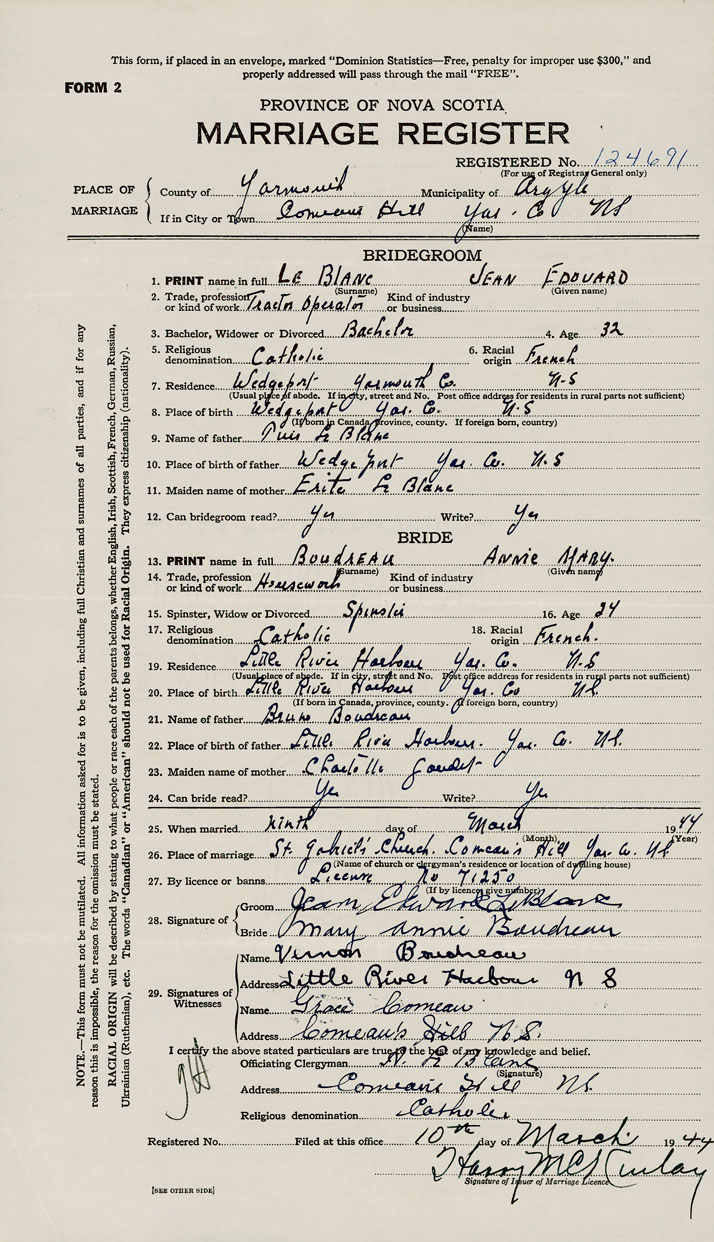 This form, if placed in an envelope, marked "Dominion Statistics—Free, penalty for improper use $300," and
properly addressed will pass through the mail "FREE".
FORM 2
PROVINCE OF NOVA SCOTIA
MARRIAGE REGISTER
REGISTERED No. 124691
(For use of Registrar General only)
PLACE OF MARRIAGE
County of Yarmouth Municipality of Argyle
If in City or Town Comeaus Hill Yar. Co NS
(Name)
BRIDEGROOM
1. PRINT name in full LE BLANC JEAN EDOUARD
(Surname) (Given name)
2. Trade, profession or kind of work Tractor Operator Kind of industry or business
3. Bachelor, Widower or Divorced Bachelor 4. Age 32
5. Religious denomination Catholic 6. Racial origin French
7. Residence Wedgeport Yarmouth Co. N-S
(Usual place of abode. If in city, street and No. Post office address for residents in rural parts not sufficient)
8. Place of birth Wedgeport Yar. Co. N-S
(If born in Canada, province, county. If foreign born, country)
9. Name of father Le Blanc
10. Place of birth of father Wedgeport Yar. Co. N S
11. Maiden name of mother Le Blanc
12. Can bridegroom read? Yes Write? Yes
BRIDE
13. PRINT name in full BOUDREAU ANNIE MARY.
(Surname) (Given name)
14. Trade, profession or kind of work Housework Kind of industry or business
15. Spinster, Widow or Divorced Spinster 16. Age 24
17. Religious denomination Catholic 18. Racial origin French.
19. Residence Little River Harbour Yar. Co. N-S
(Usual place of abode. If in city, street and No. Post office address for residents in rural parts not sufficient)
20. Place of birth Little River Harbour Yar. Co N S.
(If born in Canada, province, county. If foreign born, country)
21. Name of father Bruno Boudreau
22. Place of birth of father Little River Harbour. Yar. Co. N S.
23. Maiden name of mother Charlotte Goudet
24. Can bride read? Yes Write? Yes
25. When married ninth day of March 1944
(Month) (Year)
26. Place of marriage St. Gabriel's Church. Comeau's Hill Yar. Co. N S
(Name of church or clergyman's residence or location of dwelling house)
27. By licence or banns License No 71250
(If by licence give number)
28. Signature of
Groom Jean Edward LeBlanc
Bride Mary Annie Boudreau
29. Signatures of Witnesses
Name Vernon Boudreau
Address Little River Harbour N S
Name Grace Comeau
Address Comeau's Hill N.S.
I certify the above stated particulars are true to the best of my knowledge and belief.
Officiating Clergyman Le Blanc
(Signature)
Address Comeau's Hill NS.
Religious denomination Catholic
Registered No. Filed at this office 10th day of March 1944
Harry McKinlay
Signature of Issuer of Marriage Licence
[SEE OTHER SIDE]
NOTE.—This form must not be mutilated. All information asked for is to be given, including full Christian and surnames of all parties, and if for any
reason this is impossible, the reason for the omission must be stated.
RACIAL ORIGIN will be described by stating to what people or race each of the parents belongs, whether English, Irish, Scottish, French, German, Russian,
Ukrainian (Ruthenian), etc. The words "Canadian" or "American" should not be used for Racial Origin. They express citizenship (nationality).